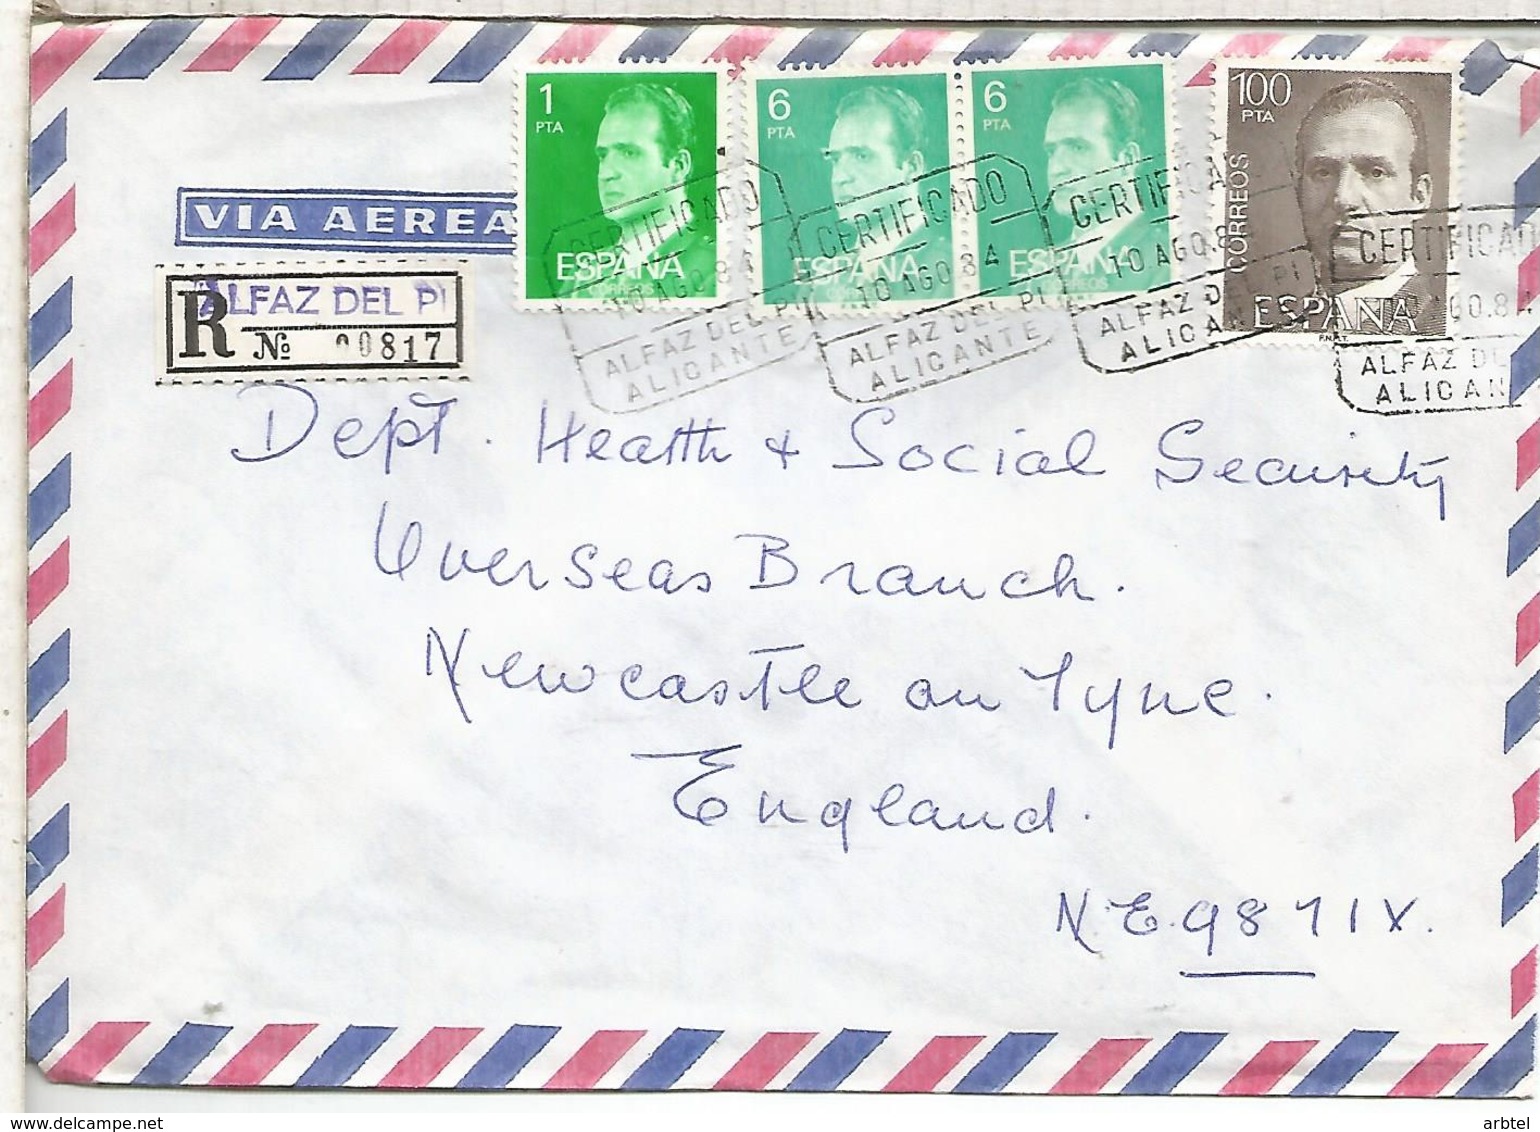 1 PTA
ESPAÑA
CORREOS
6 PTA
ESPAÑA
6 PTA
ESPAÑA
CORREOS
100 PTA
CORREOS
ESPAÑA
F.N.M.T.
VIA AEREA
R
ALFAZ DEL PI
No 00817
CERTIFICADO
10 AGO 84
ALFAZ DEL PI
ALICANTE
CERTIFICADO
10 AGO 84
ALFAZ DEL PI
ALICANTE
CERTIFICA
10 AGO.8
ALFAZ D EL PI
ALICAN
CERTIFICAD
GO.84
ALFAZ DE
ALICAN
Dept. Health + Social Security
Overseas Branch.
Newcastle on Tyne.
England.
N.E.98 1 1X.
www.delcampe.net
arbtel